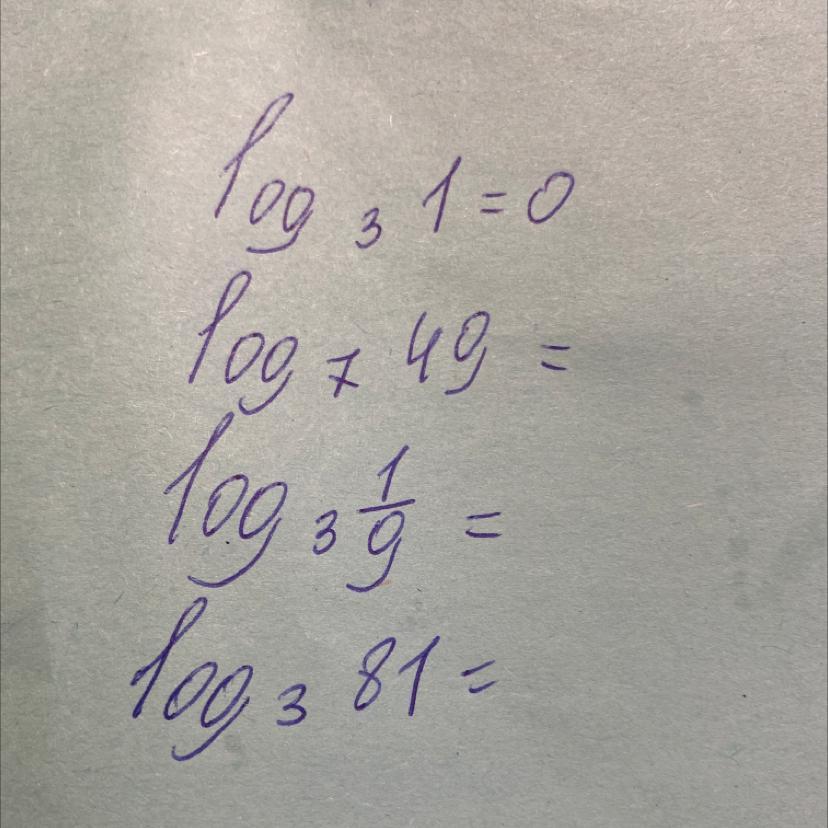 log₃ 1 = 0
log₇ 49 =
log₃ 1/9 =
log₃ 81 =